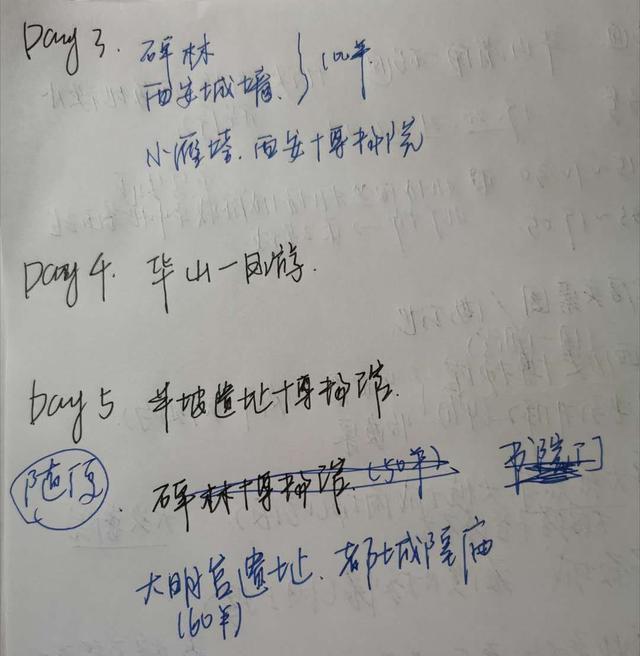 Day 3. 碑林
西安城墙. } 100半.
小雁塔. 西安博物院
Day 4. 华山一日游.
Day 5 半坡遗址博物馆.
随便. 碑林博物馆. (50半). 书院门
大明宫遗址. 都城隍庙
(60半)